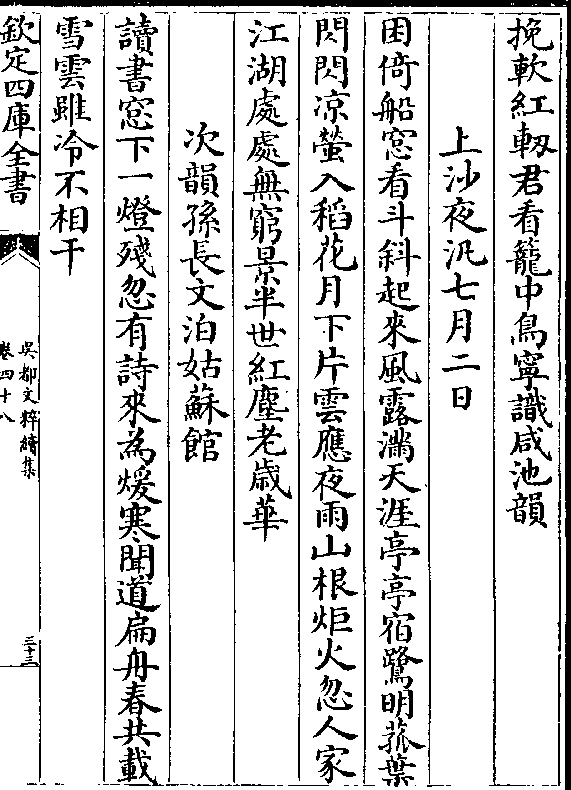 挽軟紅軔君看籠中鳥寧識咸池韻
上沙夜汎七月二日
困倚船窓看斗斜起來風露滿天涯亭亭宿鷺明菰葉
閃閃凉螢入稻花月下片雲應夜雨山根炬火忽人家
江湖處處無窮景半世紅塵老歲華
次韻孫長文泊姑蘇館
讀書窓下一燈殘忽有詩來為煖寒聞道扁舟春共載
雪雲雖冷不相干
欽定四庫全書
吳都文粹續集
卷四十八
三十三